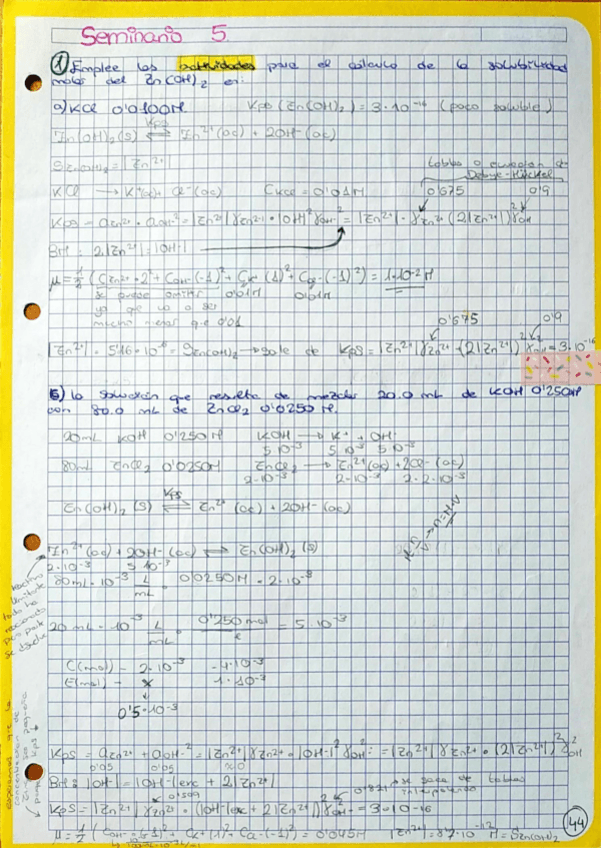 Seminario 5
① Emplee las actividades para el cálculo de la solubilidad
molar del Zn(OH)₂ en:
a) KCl 0'0100M. Kps (Zn(OH)₂) = 3·10⁻¹⁶ (poco soluble)
Zn(OH)₂ (s) ⇌ Zn²⁺(ac) + 2OH⁻(ac)
Kps
S Zn(OH)₂ = |Zn²⁺|
tablas o ecuación de
Debye-Hückel
KCl → K⁺(ac) + Cl⁻(ac) C KCl = 0'01M 0'675 0'9
Kps = a Zn²⁺ · a OH⁻² = |Zn²⁺| γ Zn²⁺ · |OH|² γ OH⁻² = |Zn²⁺| · γ Zn²⁺ (2|Zn²⁺|)² γ OH²
BM: 2|Zn²⁺| = |OH⁻|
μ = ½ (C Zn²⁺ · 2² + C OH⁻ (-1)² + C K⁺ (1)² + C Cl⁻ (-1)²) = 1·10⁻² M
se puede omitir 0'01M 0'01M
ya que va a ser
mucho menor que 0'01
0'675 0'9
|Zn²⁺| = 5'16·10⁻⁶ = S Zn(OH)₂ → sale de Kps = |Zn²⁺| γ Zn²⁺ (2|Zn²⁺|)² = 3·10⁻¹⁶
b) la solución que resulta de mezclar 20.0 mL de KOH 0'250M
con 80.0 mL de ZnCl₂ 0.0250 M.
20mL KOH 0'250M KOH → K⁺ + OH⁻
5·10⁻³ 5·10⁻³ 5·10⁻³
80mL ZnCl₂ 0'0250M ZnCl₂ → Zn²⁺(ac) + 2Cl⁻(ac)
2·10⁻³ 2·10⁻³ 2·2·10⁻³
Kps
Zn(OH)₂ (s) ⇌ Zn²⁺ (ac) + 2OH⁻ (ac)
→ n=M·V
Zn²⁺(ac) + 2OH⁻(ac) ⇌ Zn(OH)₂ (s)
2·10⁻³ 5·10⁻³
reactivo
limitante
todo ha
reaccionado
pero parte
se disuelve
80mL · 10⁻³ L/mL · 0'0250M = 2·10⁻³
20 mL · 10⁻³ L/mL · 0'250 mol/L = 5·10⁻³
C(mol) - 2·10⁻³ -4·10⁻³
E(mol) - x 1·10⁻³
0'5·10⁻³
Kps = a Zn²⁺ + a OH⁻² = |Zn²⁺| γ Zn²⁺ · |OH⁻|² γ OH² = |Zn²⁺| γ Zn²⁺ · (2|Zn²⁺|)² γ OH²
BM: |OH⁻| = |OH⁻|exc + 2|Zn²⁺|
0'509 0'821 → se saca de tablas
interpolando
Kps = |Zn²⁺| γ Zn²⁺ · (|OH⁻|exc + 2|Zn²⁺|)² = 3·10⁻¹⁶
μ = ½ (C OH⁻ (-1)² + C K⁺ (1)² + C Cl⁻ (-1)²) = 0'045M |Zn²⁺| = ·10⁻¹² M = S Zn(OH)₂
44